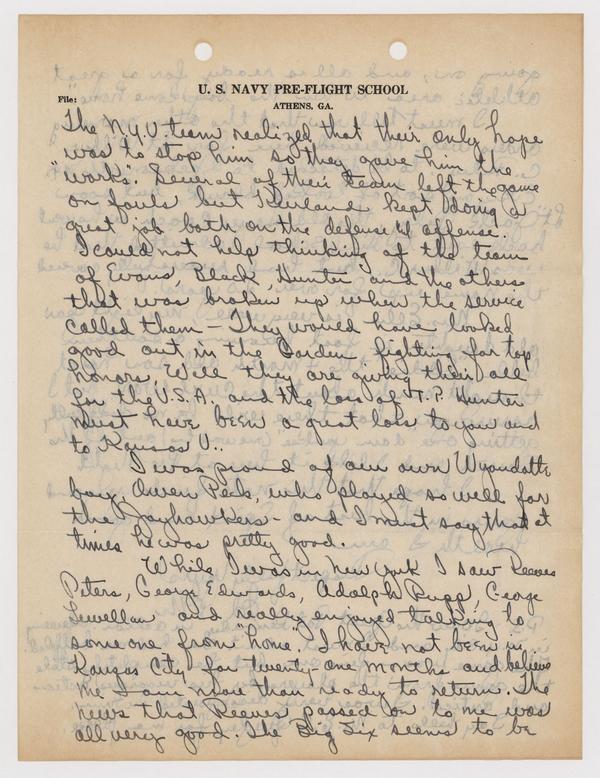 U. S. NAVY PRE-FLIGHT SCHOOL
ATHENS, GA.
File:
The N.Y.U. team realized that their only hope
was to stop him so they gave him the
"works". Several of their team left the game
on fouls but Kurland kept doing a
great job both on the defense & offense.
I could not help thinking of the team
of Evans, Black, Hunter and the others
that was broken up when the service
called them - They would have looked
good out in the Garden fighting for top
honors. Well they are giving their all
for the U.S.A. and the loss of T.P. Hunter
must have been a great loss to you and
to Kansas U..
I was proud of our own Wyandotte
boy, Owen Peck, who played so well for
the Jayhawkers - and I must say that at
times he was pretty good.
While I was in New York I saw Reeves
Peters, George Edwards, Adolph Rupp, George
Lewellan and really enjoyed talking to
someone from "home". I have not been in
Kansas City for twenty-one months and believe
me I am more than ready to return. The
news that Reeves passed on to me was
all very good. The Big Six seems to be